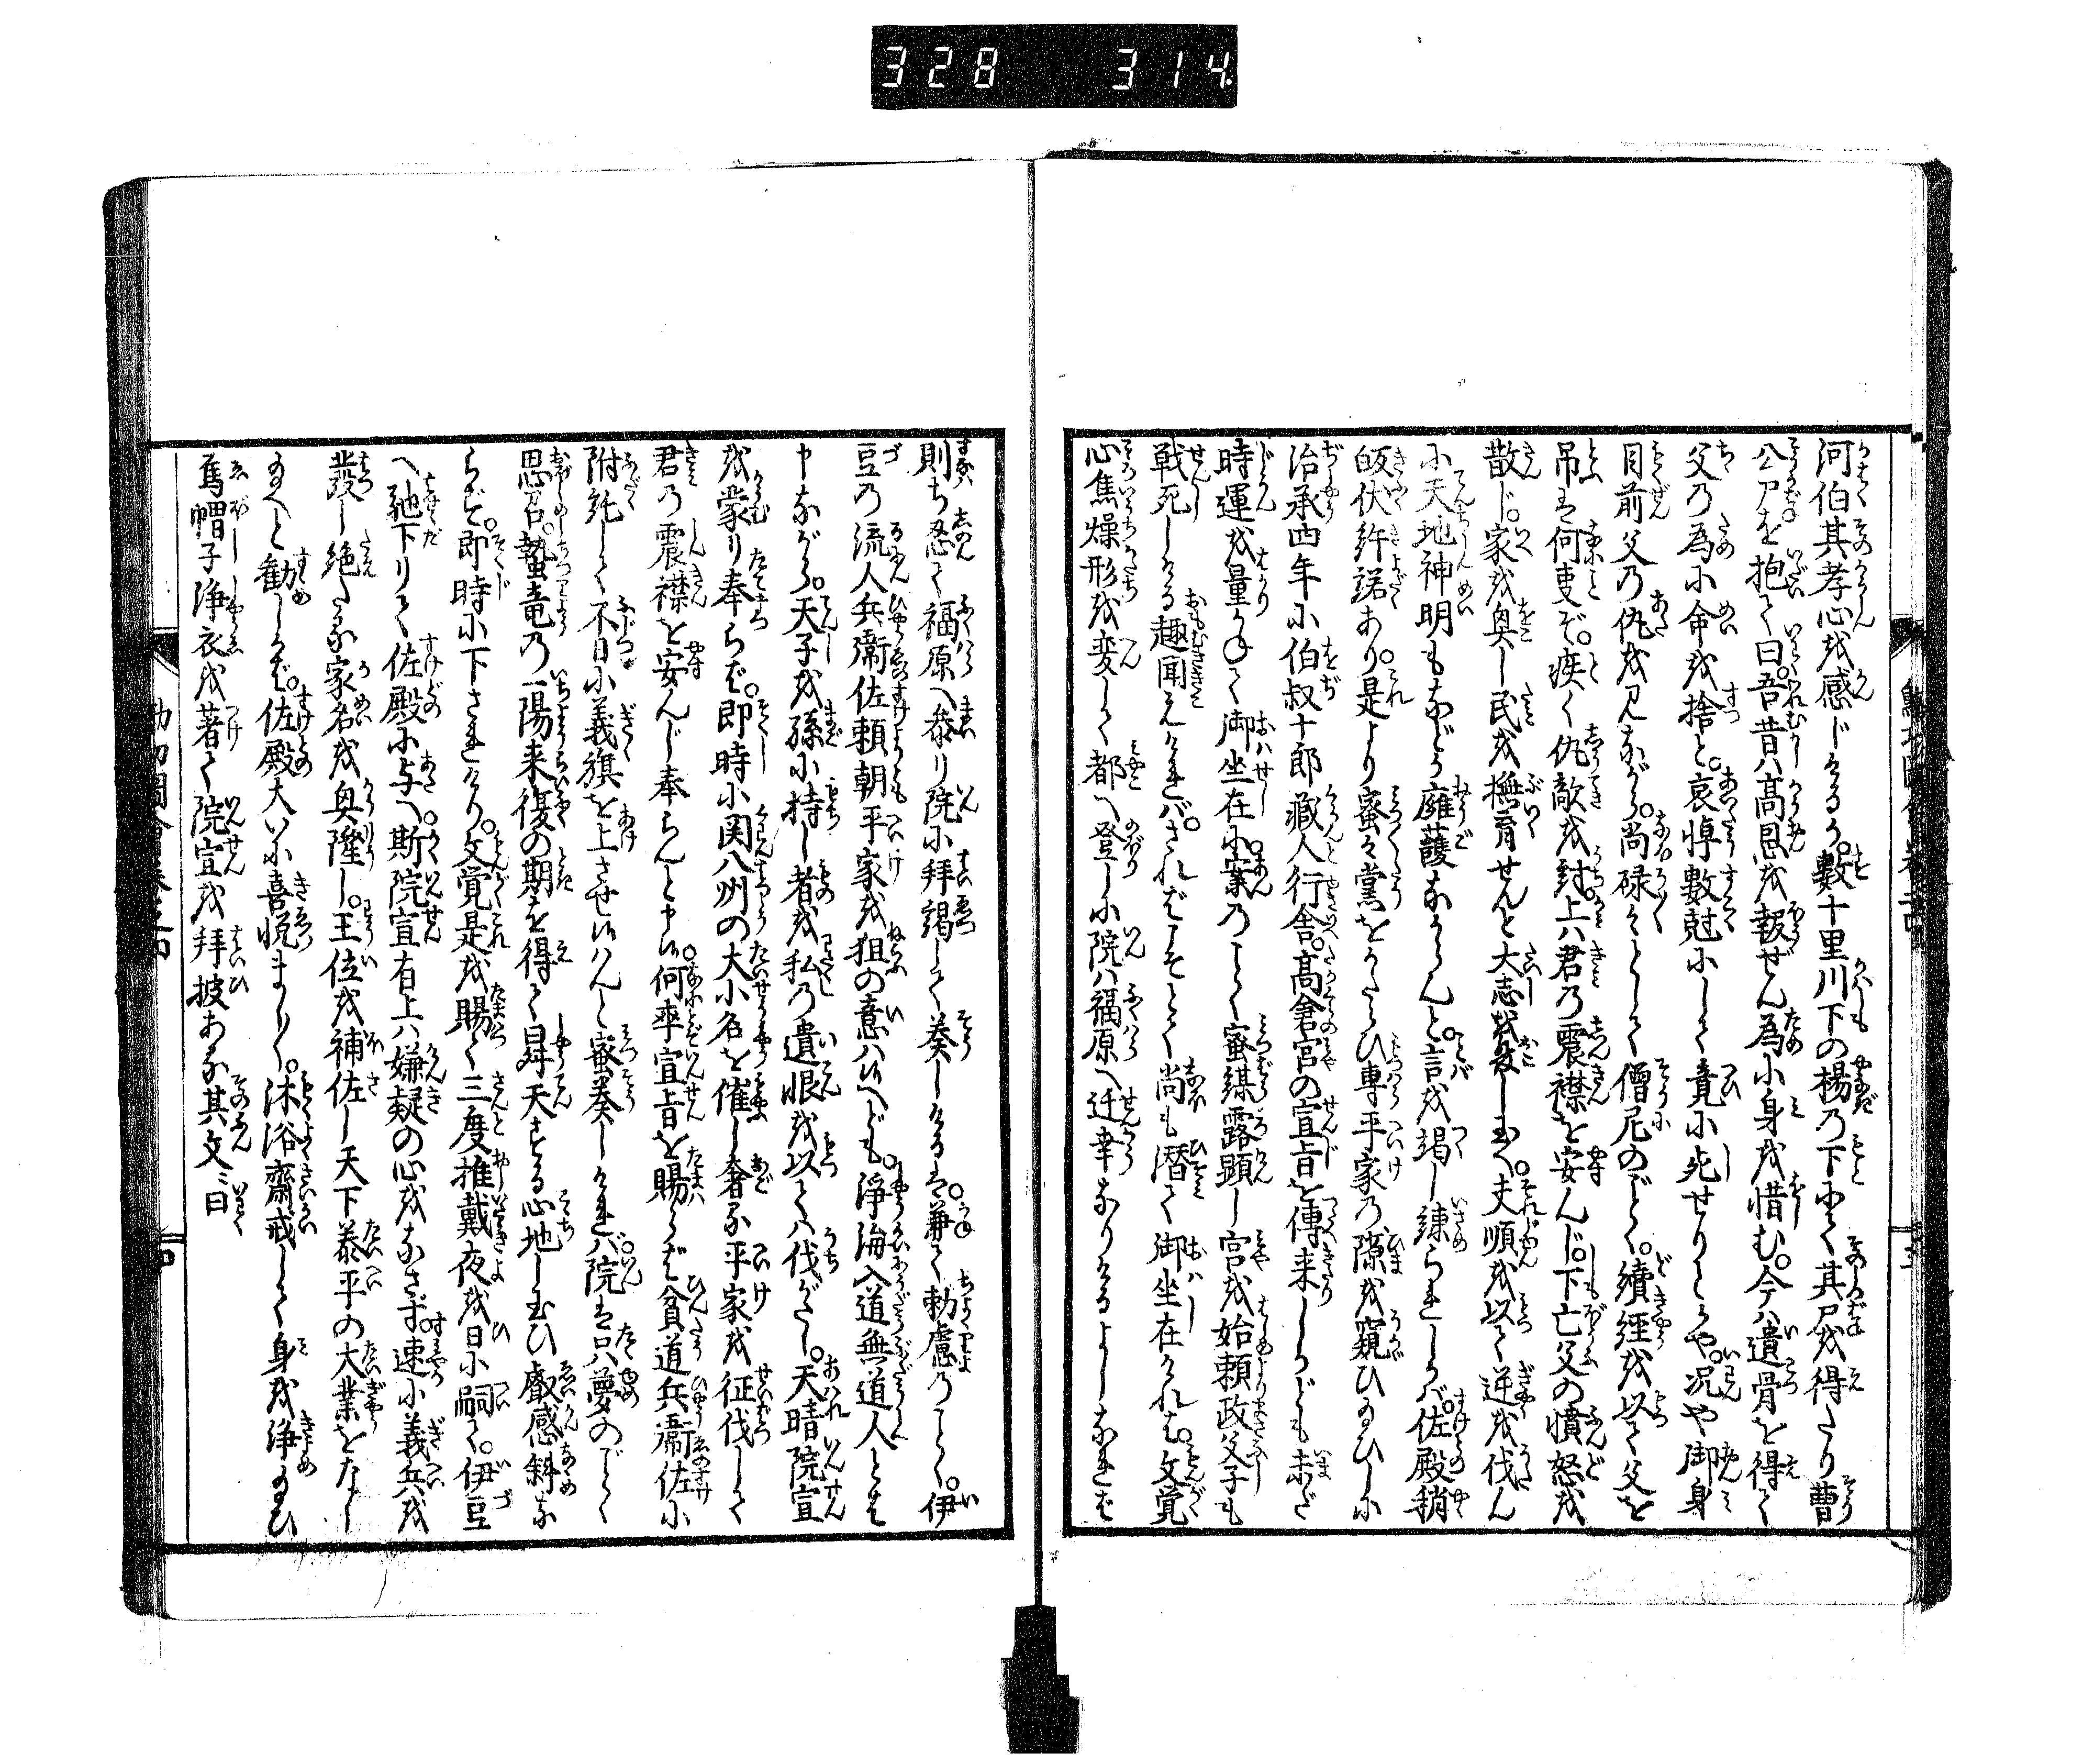 328 314
河伯其孝心を感じけるか。数十里川下の楊の下にて其尸を得たり曹
公尸を抱て曰。吾昔ハ高恩を報ぜん為に身を惜む。今ハ遺骨を得て
父の為に命を捨と。哀悼数尅にして竟に死せりとかや。况や御身
目前父の仇を見ながら。尚碌々として僧尼のごとく。續経を以て父を
吊は何事ぞ。疾く仇敵を討。上ハ君の震襟を安んじ。下亡父の憤怒を
散じ。家を興し民を撫育せんと大志を發し玉へ。夫順を以て逆を伐ん
に天地神明もなどか擁護なからんと。言を竭し諫られしかバ。佐殿稍
皈伏許諾あり。是より蜜々黨をかたらひ専平家の隙を窺ひ玉ひしに
治承四年に伯叔十郎蔵人行舎。高倉宮の宣旨を傳来しかども未だ
時運を量かねて御坐在に。案のごとく蜜謀露顕し宮を始頼政父子も
戦死しける趣聞えけれバ。さればこそとて尚も潜て御坐在けれは。文覚
心焦燥形を変して都へ登しに院ハ福原へ迁幸なりけるよしなれば
則ち忍て福原へ参り院に拝謁して奏しけるは。兼て勅慮のごとく。伊
豆の流人兵衞佐頼朝平家を狙の意ハ候へども。浄海入道無道人とは
申ながら。天子を孫に持し者を私の遺恨を以てハ伐がたし。天晴院宣
を蒙り奉らば。即時に関八州の大小名を催し奢る平家を征伐して
君の震襟を安んじ奉らんと申候。何卒宣旨を賜らば貧道兵衞佐に
附託して不日に義旗を上させ候ハんと蜜奏しけれバ。院は只夢のごとく
思召。蟄竜の一陽来復の期を得て昇天する心地し玉ひ叡感斜な
らず。即時に下されけり。文覚是を賜て三度推戴夜を日に嗣て。伊豆
へ馳下りて佐殿に与へ。斯院宣有上ハ嫌疑の心をなさず。速に義兵を
發し絶たる家名を興隆し。王位を補佐し天下泰平の大業をなし
玉へと勧しかば。佐殿大いに喜悦まし〳〵。沐浴齋戒して身を浄玉ひ
烏帽子浄衣を著て院宣を拝披ある其文ニ曰